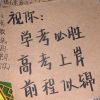 祝你:
学考必胜
高考上岸
前程似锦